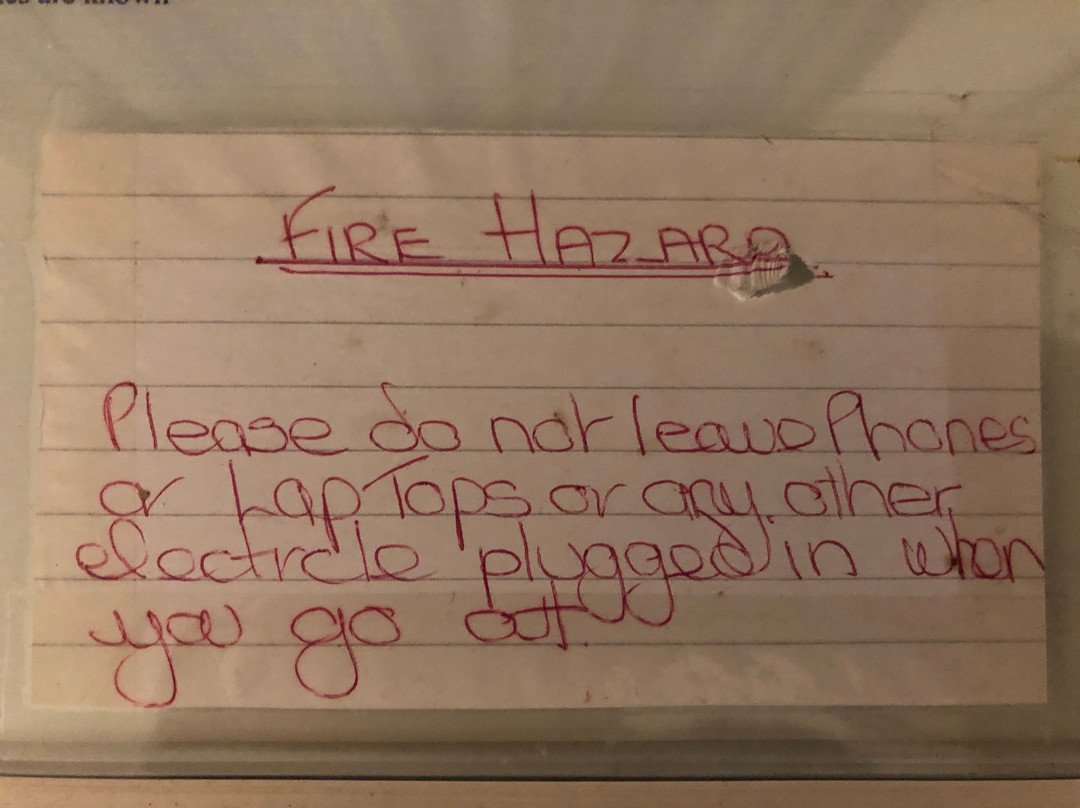 are known
FIRE HAZARD
Please do not leave Phones
or LapTops or any other
electrcle plugged in when
you go out